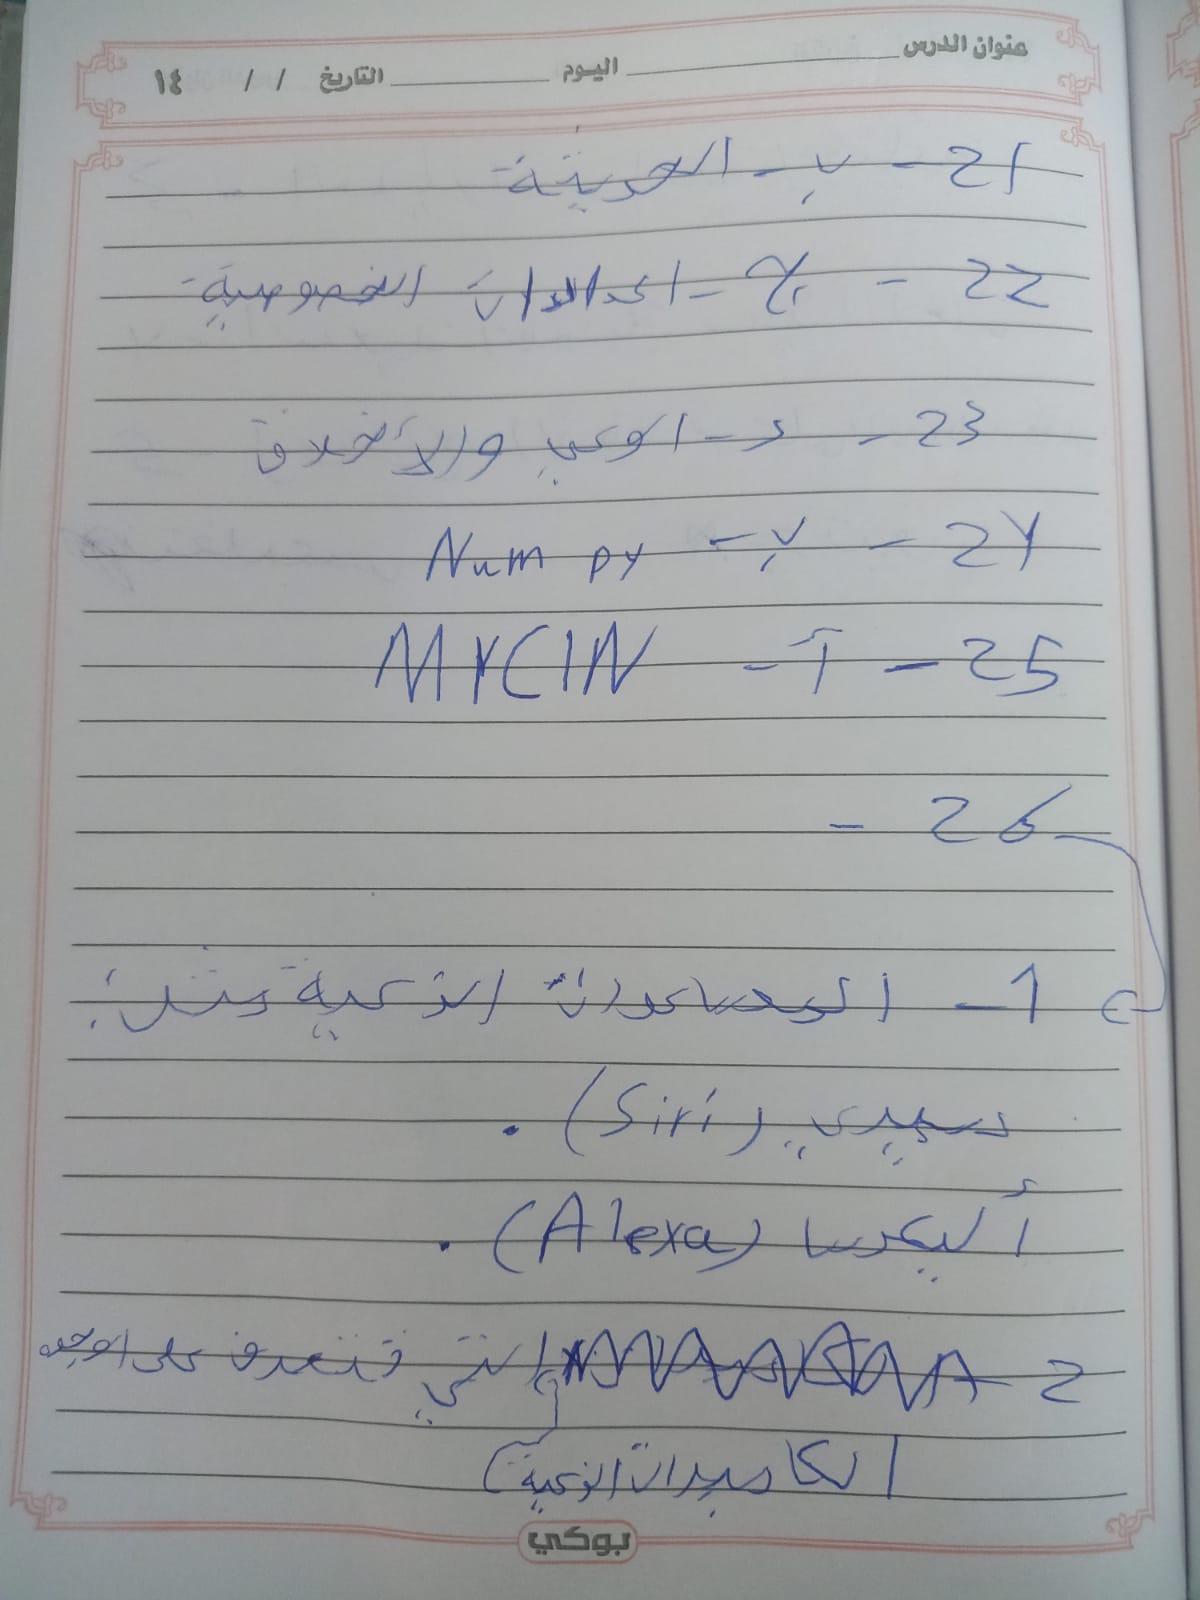 عنوان الدرس اليوم التاريخ / / ١٤
21 - ب - المرئية
22 - ج - اعدادات الخصوصية
23 - د - الوعي والأخلاق
24 - ب - Num py
25 - أ - MYCIN
26 -
1 - المساعدات الذكية مثل:
سيري (Siri).
أليكسا (Alexa).
2 - التي تتعرف على الوجه
الكاميرات الذكية
بوكي